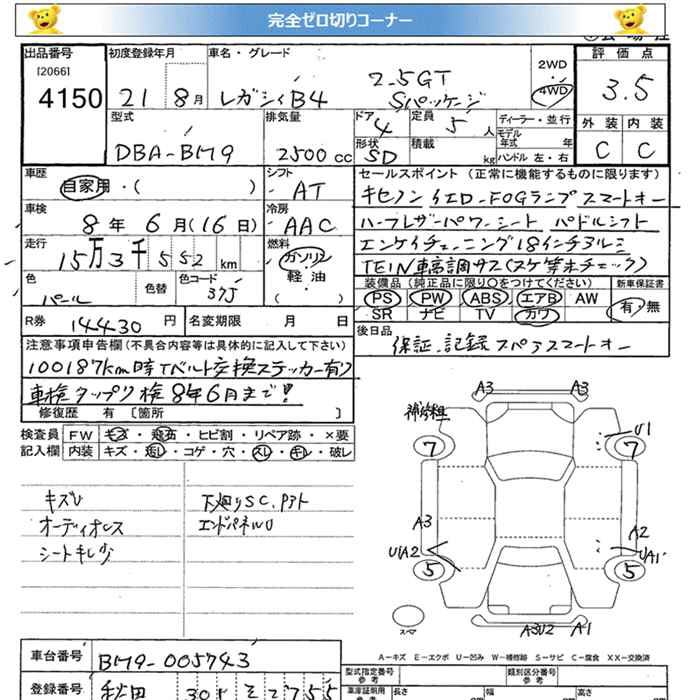 完全ゼロ切りコーナー
出品番号
[2066]
4150
初度登録年月
21 8月
車名・グレード
レガシィB4 2.5GT Sパッケージ
2WD
・
4WD
評価点
3.5
外装 内装
C C
型式
DBA-BM9
排気量
2500 cc
ドア 4
定員 5 人
形状 SD
積載 kg
ディーラー・並行
モデル年式 年
ハンドル 左・右
車歴
自家用・( )
シフト
AT
車検
8年 6月(16日)
冷房
AAC
走行
15万3千552 km
燃料
ガソリン
軽油
( )
色
パール
色替
色コード
37J
セールスポイント (正常に機能するものに限ります)
キセノン イエローFOGランプ スマートキー
ハーフレザーパワーシート パドルシフト
エンケイチューニング18インチアルミ
TEIN車高調サス(スケ等未チェック)
装備品 (純正品に限り○をつけてください)
PS PW ABS エアB AW
SR ナビ TV カワ
新車保証書
有・無
R券 14430 円
名変期限 月 日
後日品
保証.記録 スペアスマートキー
注意事項申告欄(不具合内容等は具体的に記入して下さい)
100187km時Tベルト交換ステッカー有り
車検タップリ検8年6月まで!
修復歴 有 [箇所 ]
検査員
記入欄
FW キズ・飛石・ヒビ割・リペア跡・×要
内装 キズ・汚レ・コゲ・穴・スレ・キレ・破レ
キズU
オーディオレス
シートキレ少
下廻りSC.Pアト
エンドパネルU
A3 A3
7 7
U1
A3
A2
U1A2
UA1
5 5
スペア
A3U2 A1
A-キズ E-エクボ U-凹み W-補修跡 S-サビ C-腐食 XX-交換済
車台番号 BM9-005743
登録番号 秋田 301
型式指定番号
参考
類別区分番号
参考
車庫証明用
参考
長さ 幅 高さ